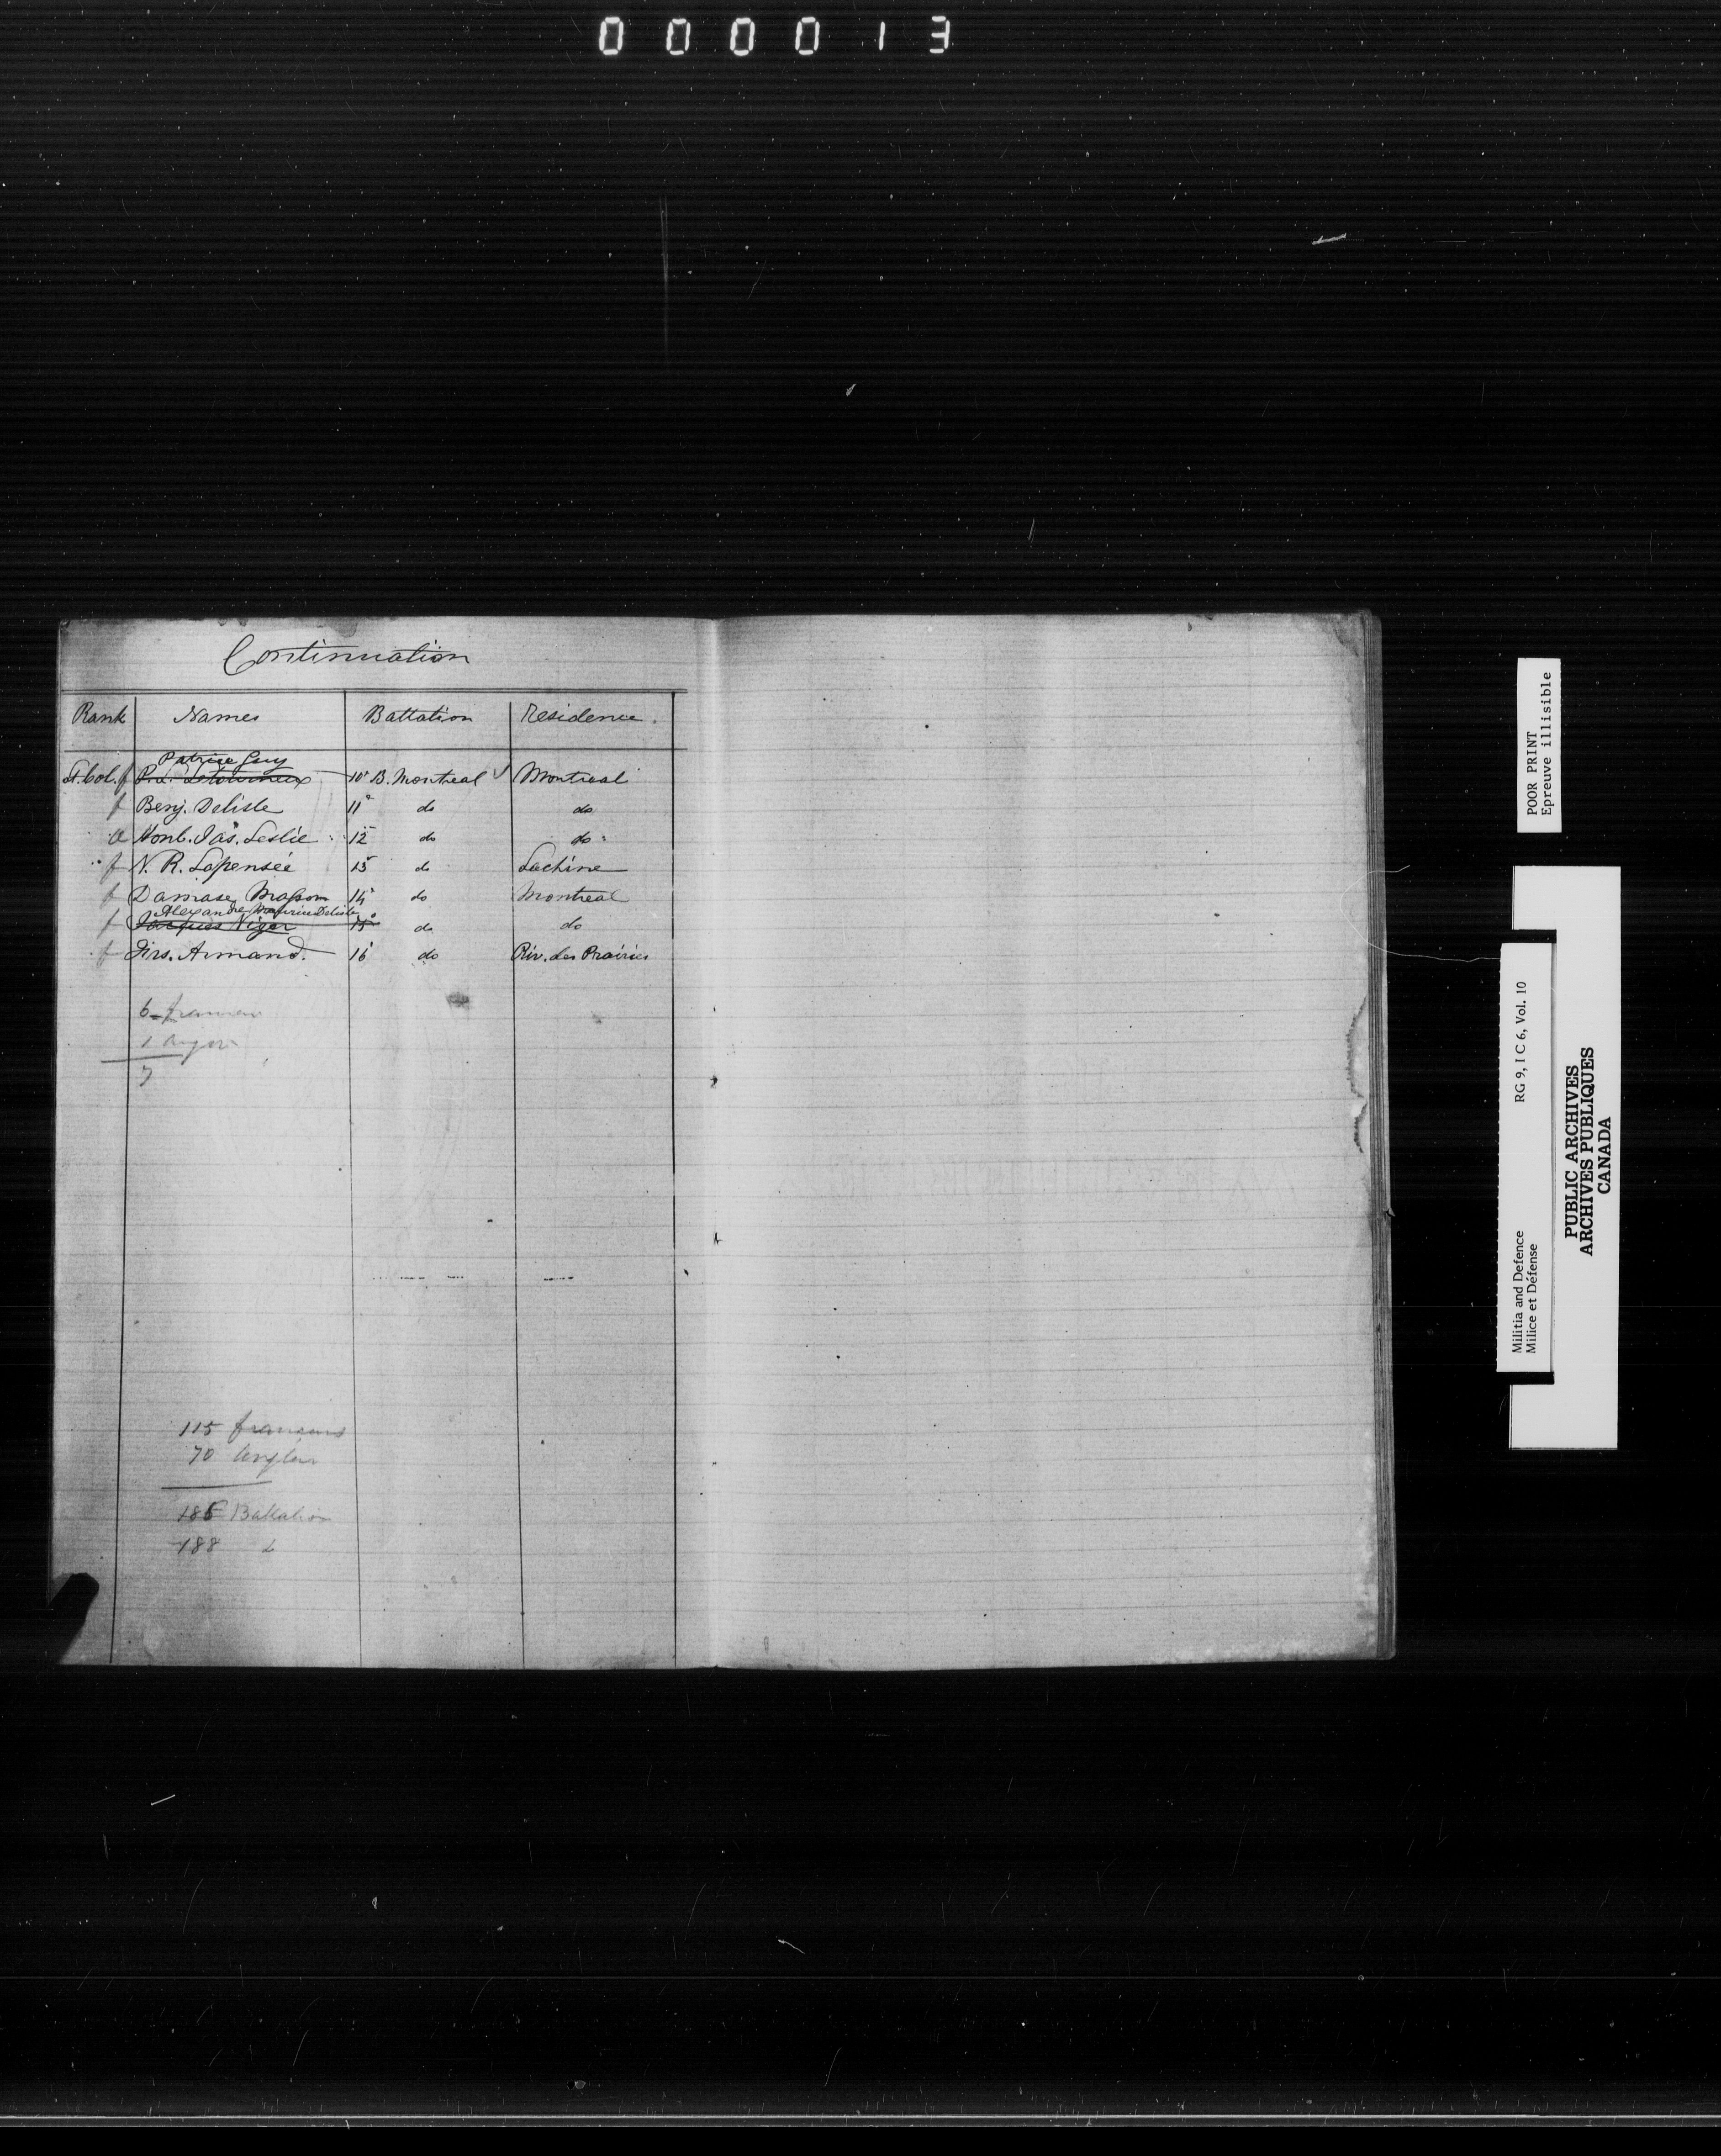 000013
Continuation
Rank Names Battation Residence.
Patrice Guy
Lt. Col. f P. L. Letourneux 10e B. Montreal Montreal
f Benj. Delisle 11e do do
a Honb. Jas. Leslie 12 do do
f N. R. Lapensée 13 do Lachine
f Damase Masson 14e do Montreal
Alexandre Maurice Delisle
f Jacques Viger 15e do do
f Firs. Armand. 16 do Riv. des Prairies
6 francais
1 Anglois
7
115 francais
70 Anglais
185 Battalion
188
POOR PRINT
Epreuve illisible
Militia and Defence RG 9, I C 6, Vol. 10
Milice et Défense
PUBLIC ARCHIVES
ARCHIVES PUBLIQUES
CANADA